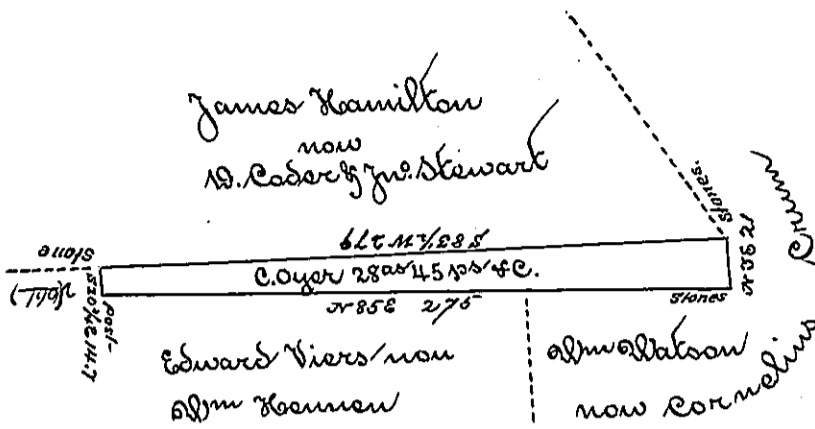 James Hamilton
now
D. Coder & Jno. Stewart
Stones.
S 83½ W 279
Stone
C. Oyer 28as 45 ps & C.
N 3 E 21
Post
N 85 E 275
Stones
Edward Viers now
Wm Hennen
Wm Watson
now Cornelius Crumm